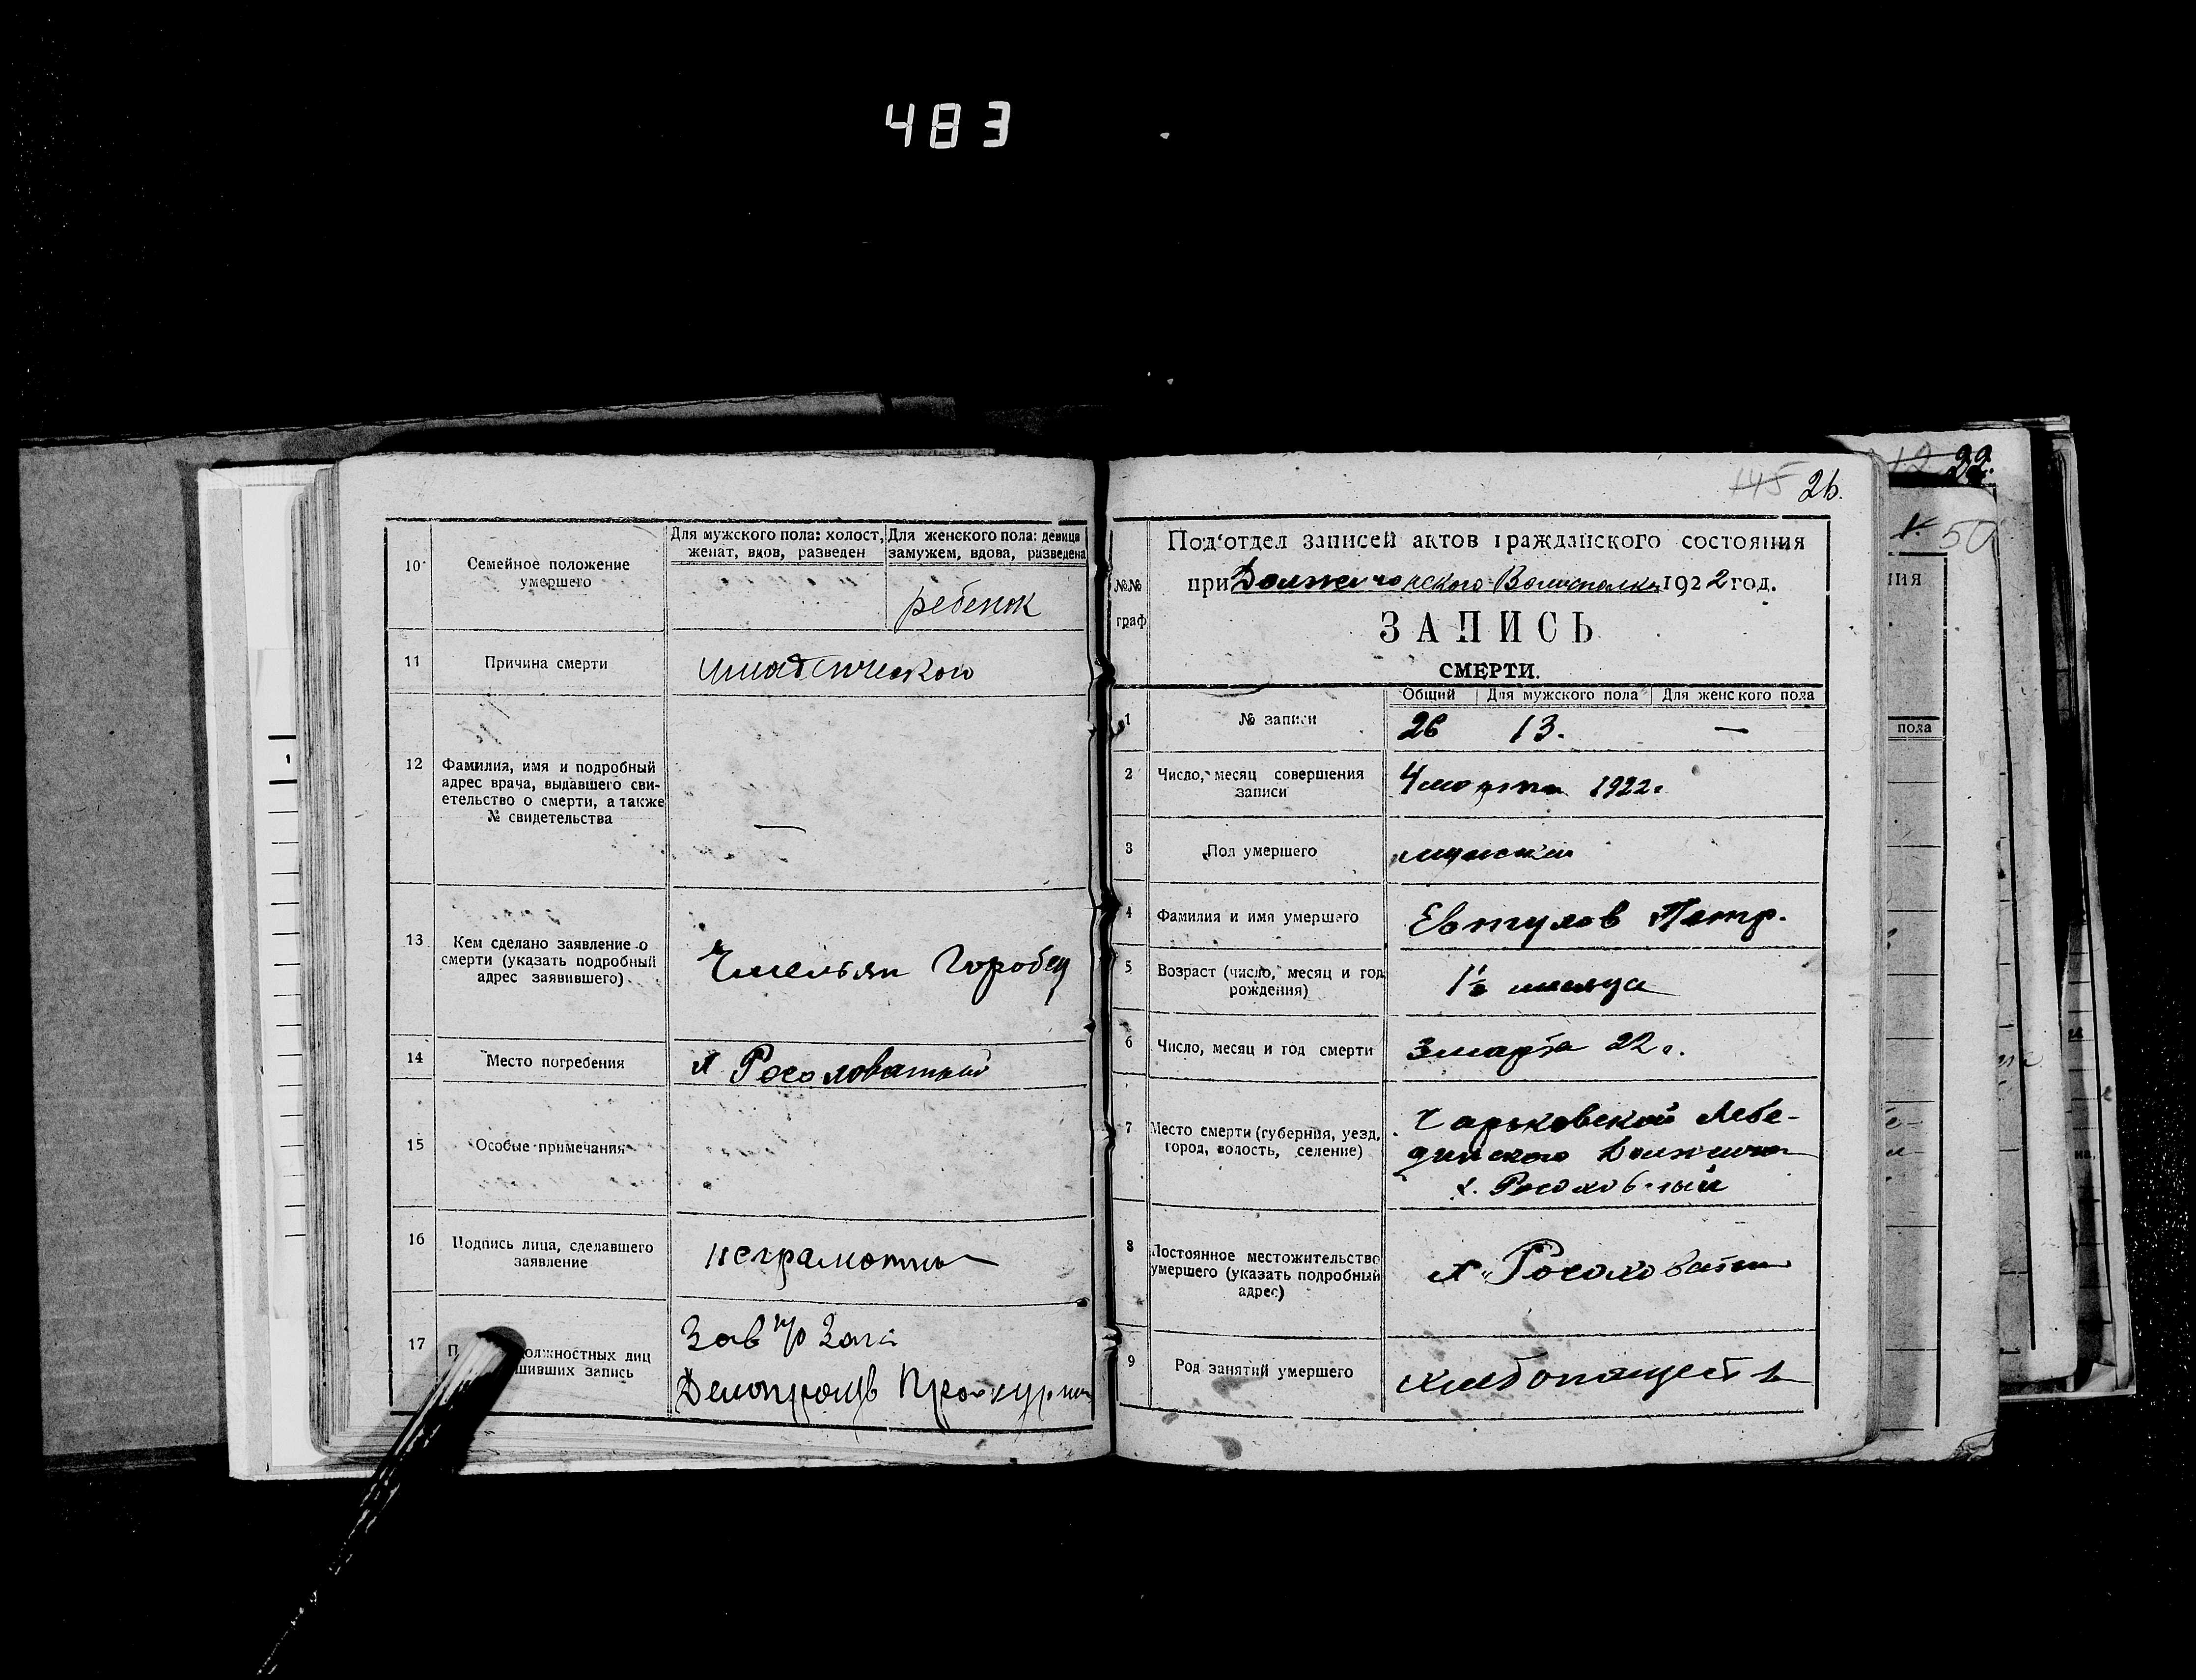 483
10
Семейное положение
умершего
Для мужского пола: холост,
женат, вдов, разведен
Для женского пола: девица
замужем, вдова, разведена
ребенок
11
Причина смерти
12
Фамилия, имя и подробный
адрес врача, выдавшего сви-
етельство о смерти, а также
№ свидетельства
—
13
Кем сделано заявление о
смерти (указать подробный
адрес заявившего)
Емельян Горобец
14
Место погребения
х Росоховатый
15
Особые примечания
16
Подпись лица, сделавшего
заявление
неграмотный
17
должностных лиц
шивших запись
Зав п/о Загс
Делопроизв
145 26.
№№
граф
Под'отдел записей актов гражданского состояния
при 1922 год.
ЗАПИСЬ
СМЕРТИ.
Общий Для мужского пола Для женского пола
1
№ записи
26 13. —
2
Число, месяц совершения
записи
4 марта 1922 г.
3
Пол умершего
мужской
4
Фамилия и имя умершего
Евтухов Петр.
5
Возраст (число, месяц и год
рождения)
1½ месяца
6
Число, месяц и год смерти
3 марта 22 г.
7
Место смерти (губерния, уезд,
город, волость, селение)
Харьковской Лебе-
динского
х. Росоховатый
8
Постоянное местожительство
умершего (указать подробный
адрес)
х. Росоховатый
9
Род занятий умершего
хлебопашест
12 22.
50
ния
пола